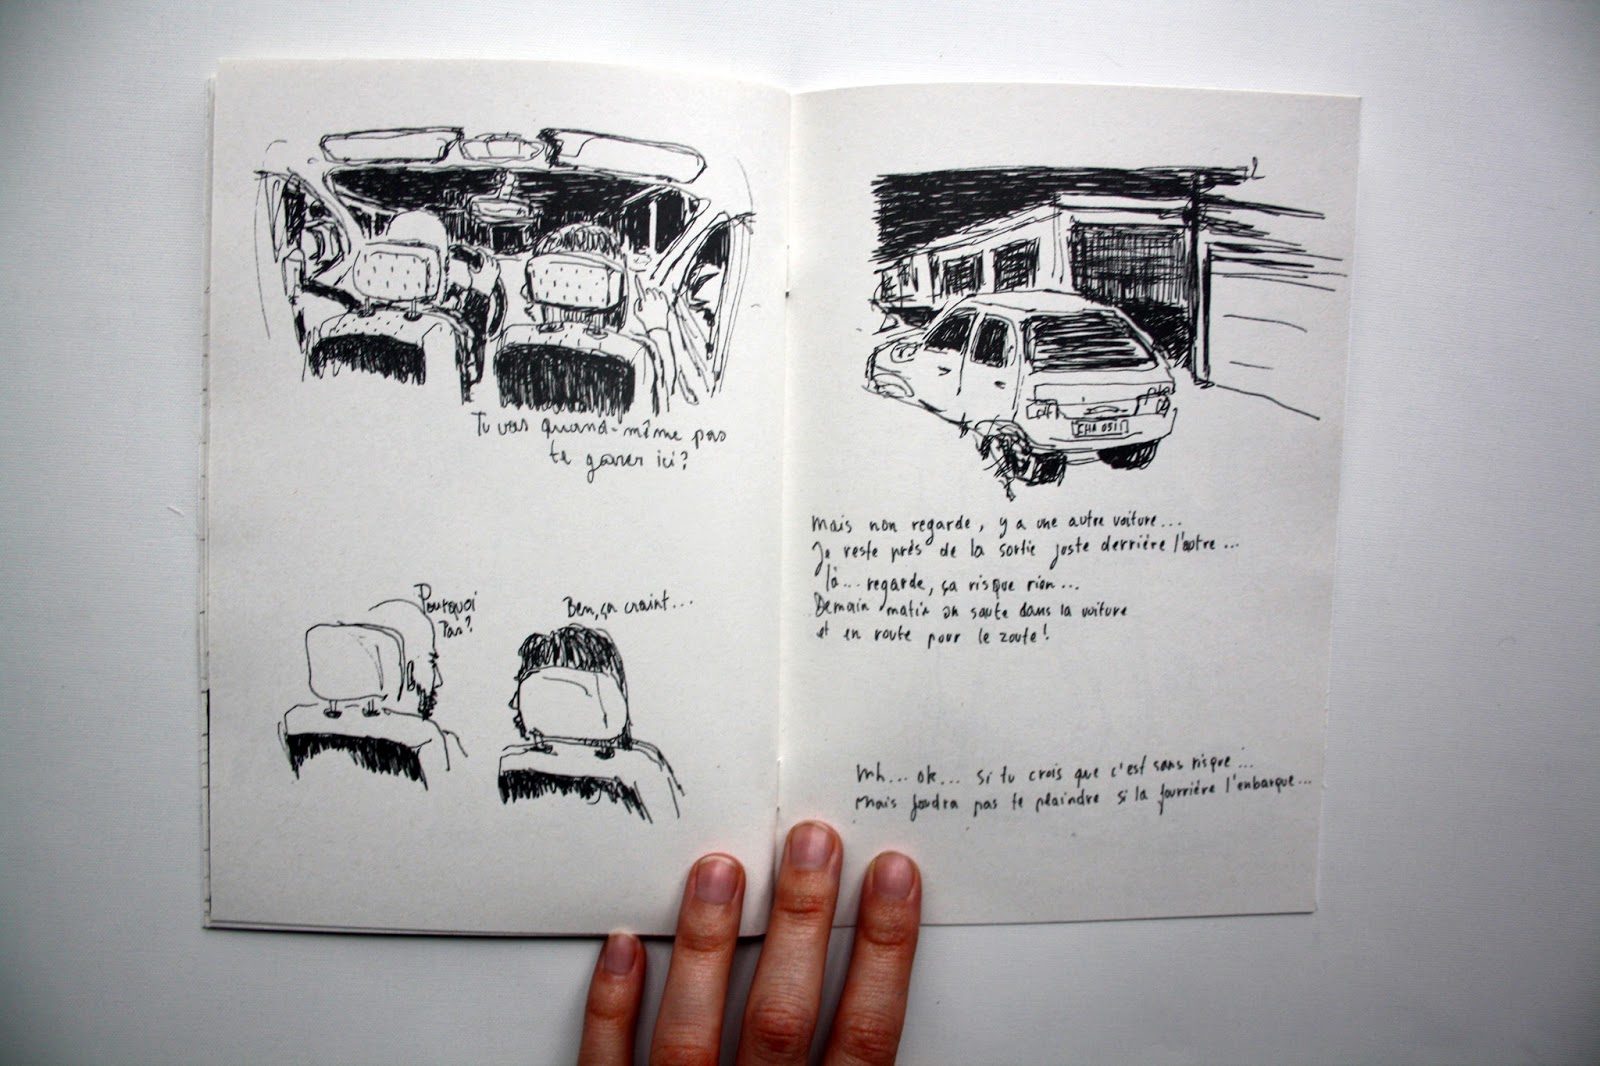 Tu vas quand-même pas
te garer ici?
Pourquoi
Pas?
Ben, ça craint...
CHA 0511
Mais non regarde, y a une autre voiture...
Je reste près de la sortie juste derrière l'autre...
là... regarde, ça risque rien...
Demain matin on saute dans la voiture
et en route pour le zoute!
Mh... ok... si tu crois que c'est sans risque...
Mais faudra pas te plaindre si la fourrière l'enbarque...